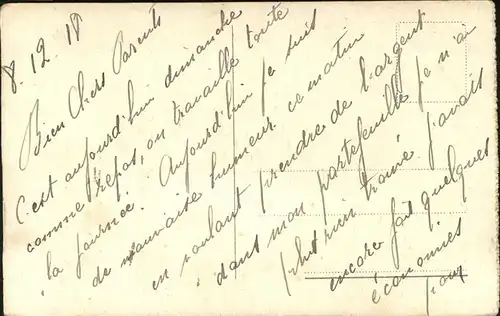 8.12.18
Bien Chers Parents
C'est aujourd'hui dimanche
comme repos, on travaille toute
la journée. Aujourd'hui je suis
de mauvaise humeur ce matin
en voulant prendre de l'argent
dans mon portefeuille je n'ai
plus rien trouvé j'avais
encore fait quelques
économies
pour